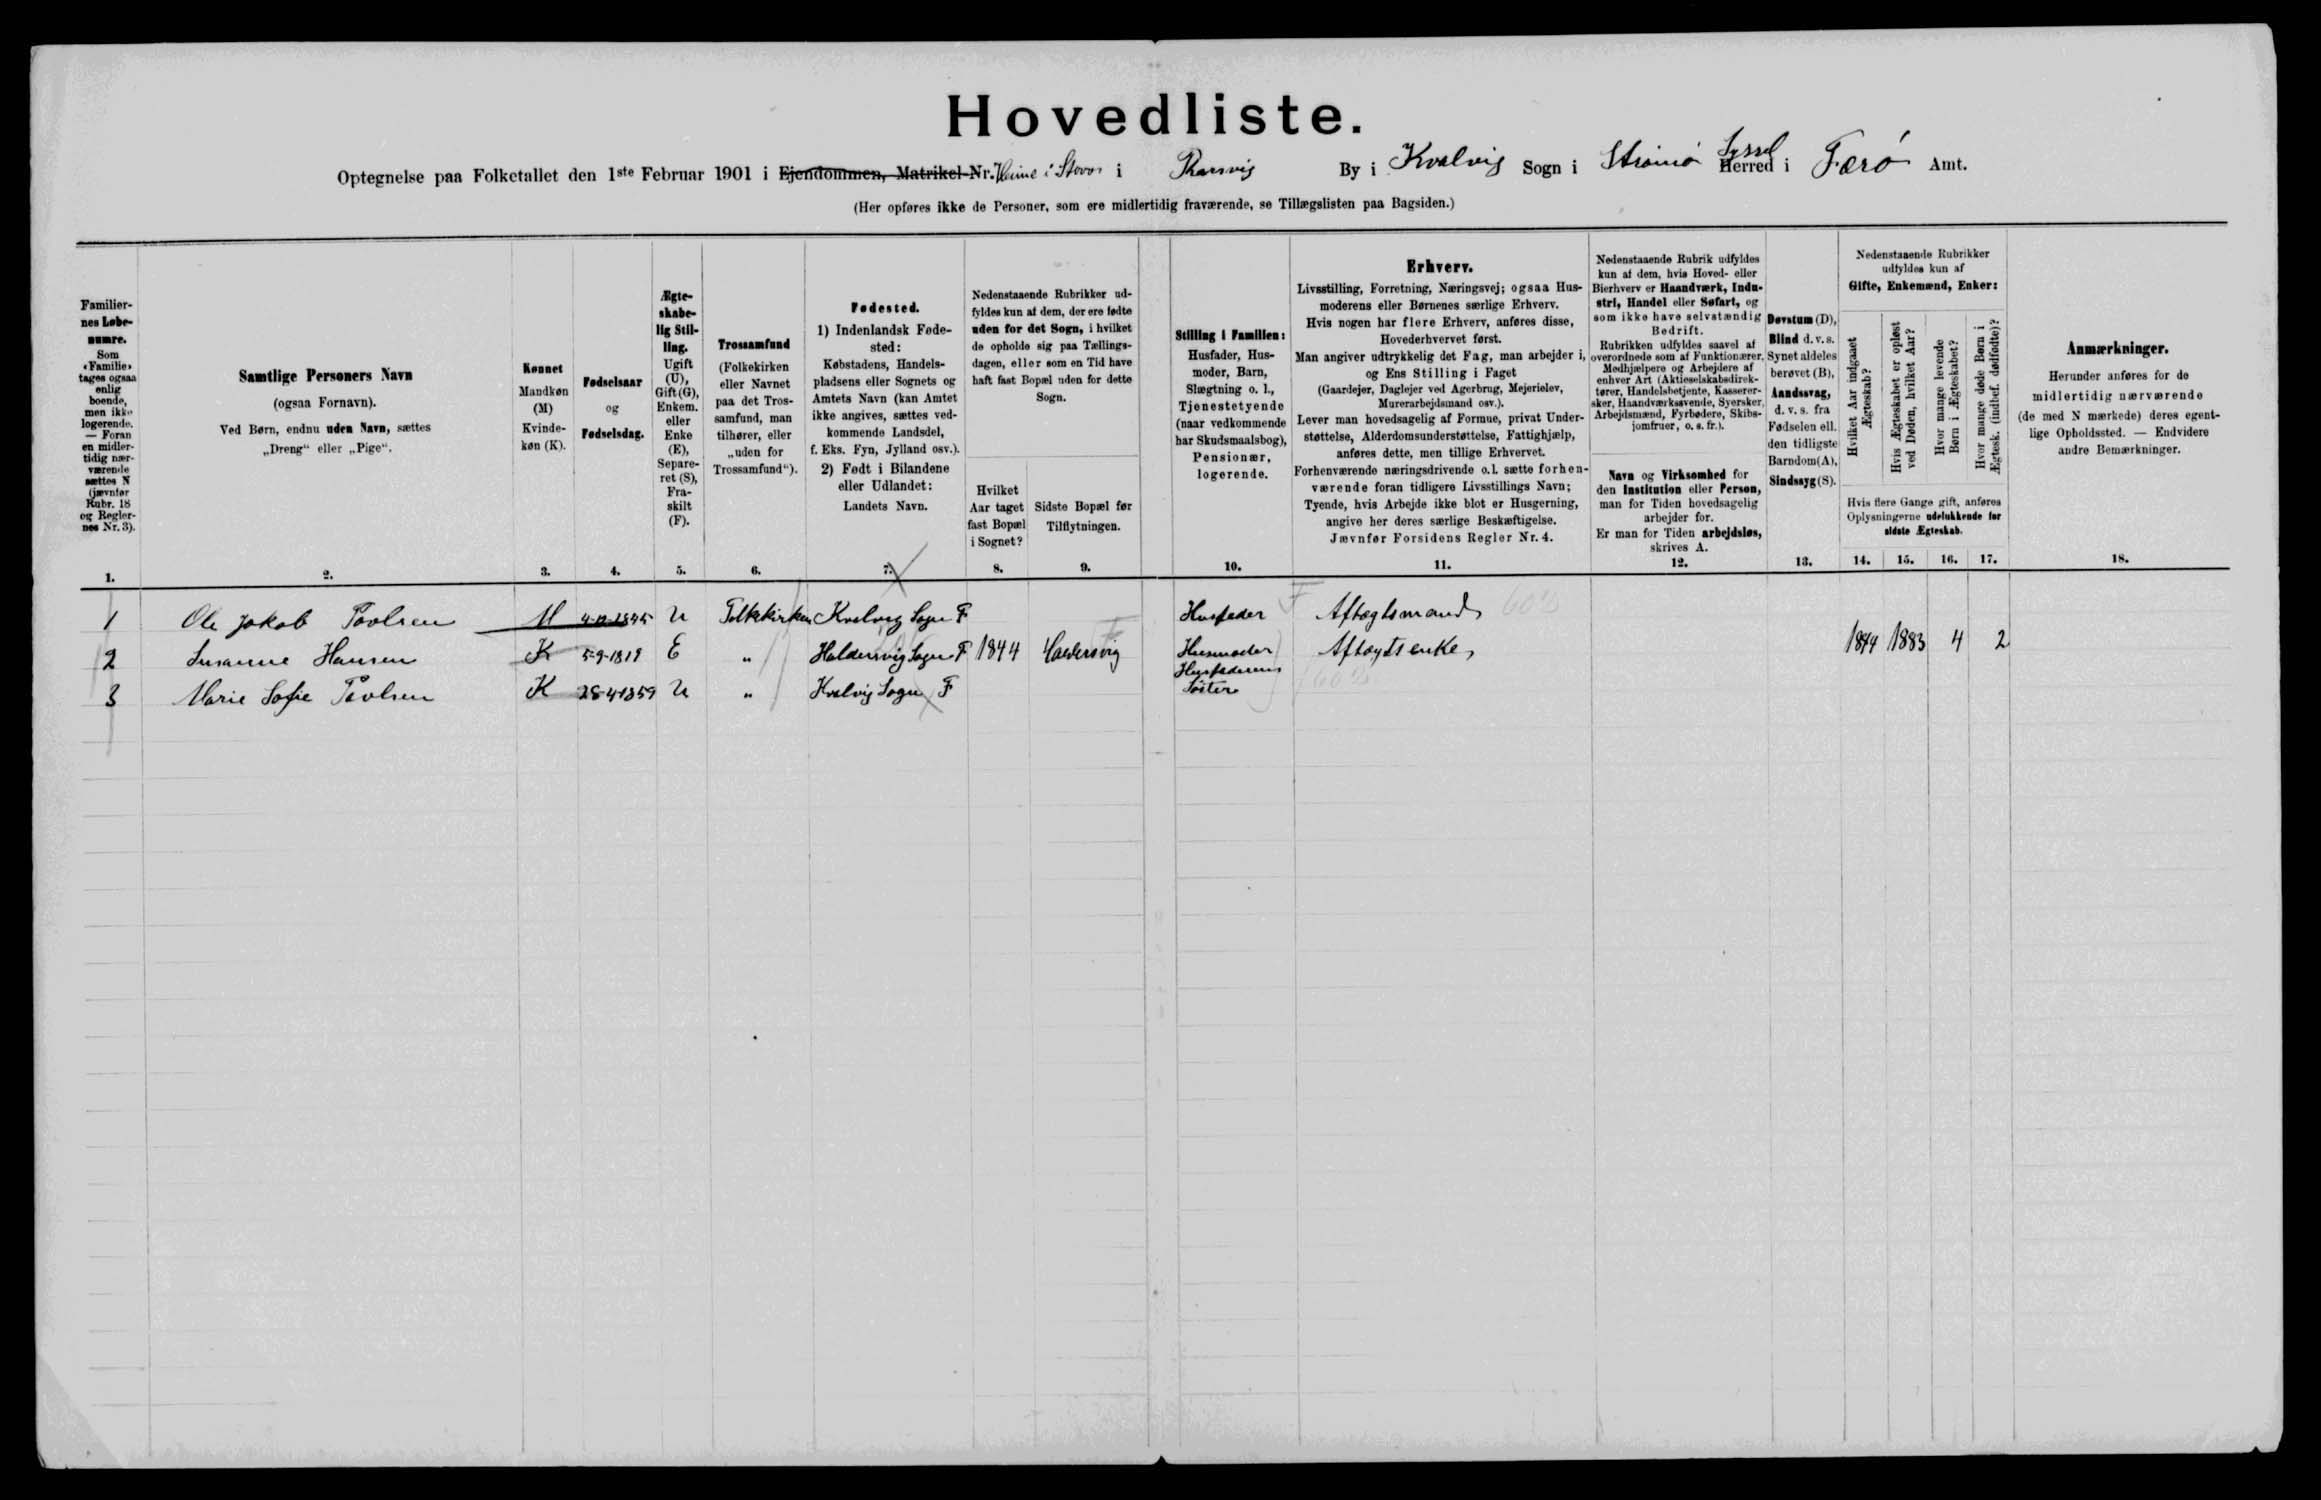 Hovedliste.
Optegnelse paa Folketallet den 1ste Februar 1901 i Ejendommen, Matrikel-Nr. Heime i Stovo i Thorsvig By i Kvalvig Sogn i Strømø Syssel Herred i Færø Amt.
(Her opføres ikke de Personer, som ere midlertidig fraværende, se Tillægslisten paa Bagsiden.)
Familiernes Løbenumre.
Som «Familie» tages ogsaa enlig boende, men ikke logerende. — Foran en midlertidig nærværende sættes N (jævnfør Rubr. 18 og Reglernes Nr. 3).
Samtlige Personers Navn
(ogsaa Fornavn).
Ved Børn, endnu uden Navn, sættes
„Dreng“ eller „Pige“.
Kønnet
Mandkøn (M)
Kvindekøn (K).
Fødselsaar
og
Fødselsdag.
Ægteskabelig Stilling.
Ugift (U), Gift (G), Enkem. eller Enke (E), Separeret (S), Fraskilt (F).
Trossamfund
(Folkekirken eller Navnet paa det Trossamfund, man tilhører, eller „uden for Trossamfund“).
Fødested.
1) Indenlandsk Fødested:
Købstadens, Handelspladsens eller Sognets og Amtets Navn (kan Amtet ikke angives, sættes vedkommende Landsdel, f. Eks. Fyn, Jylland osv.).
2) Født i Bilandene eller Udlandet:
Landets Navn.
Nedenstaaende Rubrikker udfyldes kun af dem, der ere fødte uden for det Sogn, i hvilket de opholde sig paa Tællingsdagen, eller som en Tid have haft fast Bopæl uden for dette Sogn.
Hvilket Aar taget fast Bopæl i Sognet?
Sidste Bopæl før Tilflytningen.
Stilling i Familien:
Husfader, Husmoder, Barn, Slægtning o. l., Tjenestetyende (naar vedkommende har Skudsmaalsbog), Pensionær, logerende.
Erhverv.
Livsstilling, Forretning, Næringsvej; ogsaa Husmoderens eller Børnenes særlige Erhverv.
Hvis nogen har flere Erhverv, anføres disse, Hovederhvervet først.
Man angiver udtrykkelig det Fag, man arbejder i, og Ens Stilling i Faget
(Gaardejer, Daglejer ved Agerbrug, Mejerielev, Murerarbejdsmand osv.).
Lever man hovedsagelig af Formue, privat Understøttelse, Alderdomsunderstøttelse, Fattighjælp, anføres dette, men tillige Erhvervet.
Forhenværende næringsdrivende o. l. sætte forhenværende foran tidligere Livsstillings Navn;
Tyende, hvis Arbejde ikke blot er Husgerning, angive her deres særlige Beskæftigelse.
Jævnfør Forsidens Regler Nr. 4.
Nedenstaaende Rubrik udfyldes kun af dem, hvis Hoved- eller Bierhverv er Haandværk, Industri, Handel eller Søfart, og som ikke have selvstændig Bedrift.
Rubrikken udfyldes saavel af overordnede som af Funktionærer, Medhjælpere og Arbejdere af enhver Art (Aktieselskabsdirektører, Handelsbetjente, Kasserersker, Haandværkssvende, Syersker, Arbejdsmænd, Fyrbødere, Skibsjomfruer, o. s. fr.).
Navn og Virksomhed for den Institution eller Person, man for Tiden hovedsagelig arbejder for.
Er man for Tiden arbejdsløs, skrives A.
Døvstum (D), Blind d. v. s. Synet aldeles berøvet (B), Aandssvag, d. v. s. fra Fødselen ell. den tidligste Barndom (A), Sindssyg (S).
Nedenstaaende Rubrikker udfyldes kun af
Gifte, Enkemænd, Enker:
Hvilket Aar indgaaet Ægteskab?
Hvis Ægteskabet er opløst ved Døden, hvilket Aar?
Hvor mange levende Børn i Ægteskabet?
Hvor mange døde Børn i Ægtesk. (indbef. dødfødte)?
Hvis flere Gange gift, anføres Oplysningerne udelukkende for sidste Ægteskab.
Anmærkninger.
Herunder anføres for de midlertidig nærværende (de med N mærkede) deres egentlige Opholdssted. — Endvidere andre Bemærkninger.
1. 2. 3. 4. 5. 6. 7. 8. 9. 10. 11. 12. 13. 14. 15. 16. 17. 18.
1 Ole Jakob Povlsen M 4-12-1845 U Folkekirken Kvalvig Sogn F Husfader F Aftægtsmand
2 Susanne Hansen K 5-9-1819 E „ Haldersvig Sogn F 1844 Haldersvig Husmoder Aftægtsenke 1844 1883 4 2
3 Marie Sofie Povlsen K 28-4-1859 U „ Kvalvig Sogn F Husfaderens Søster